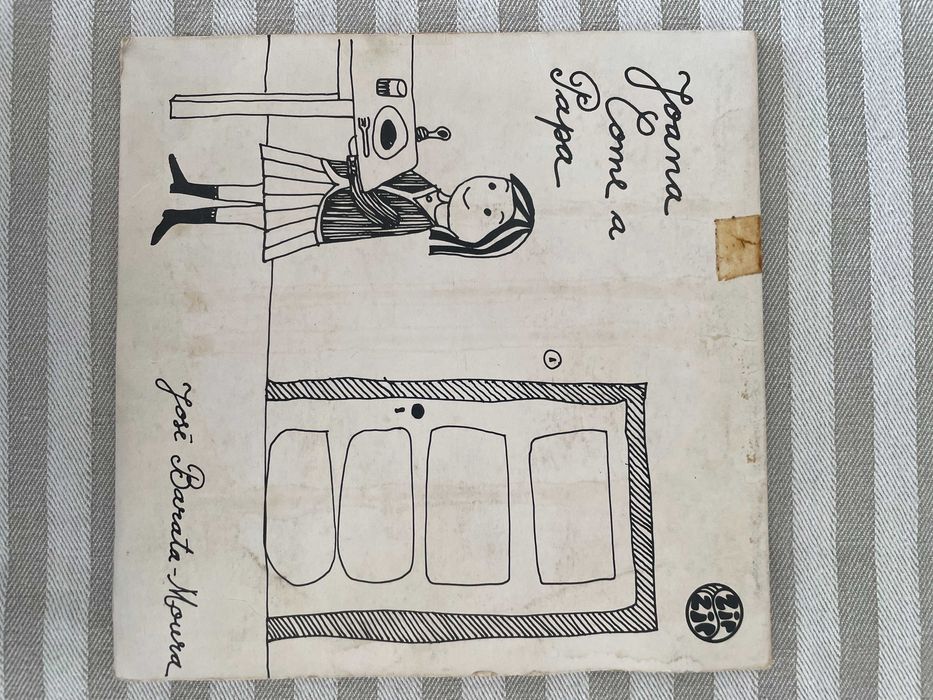 Joana
Come a
Papa
ZIP
ZIP
José Barata-Moura